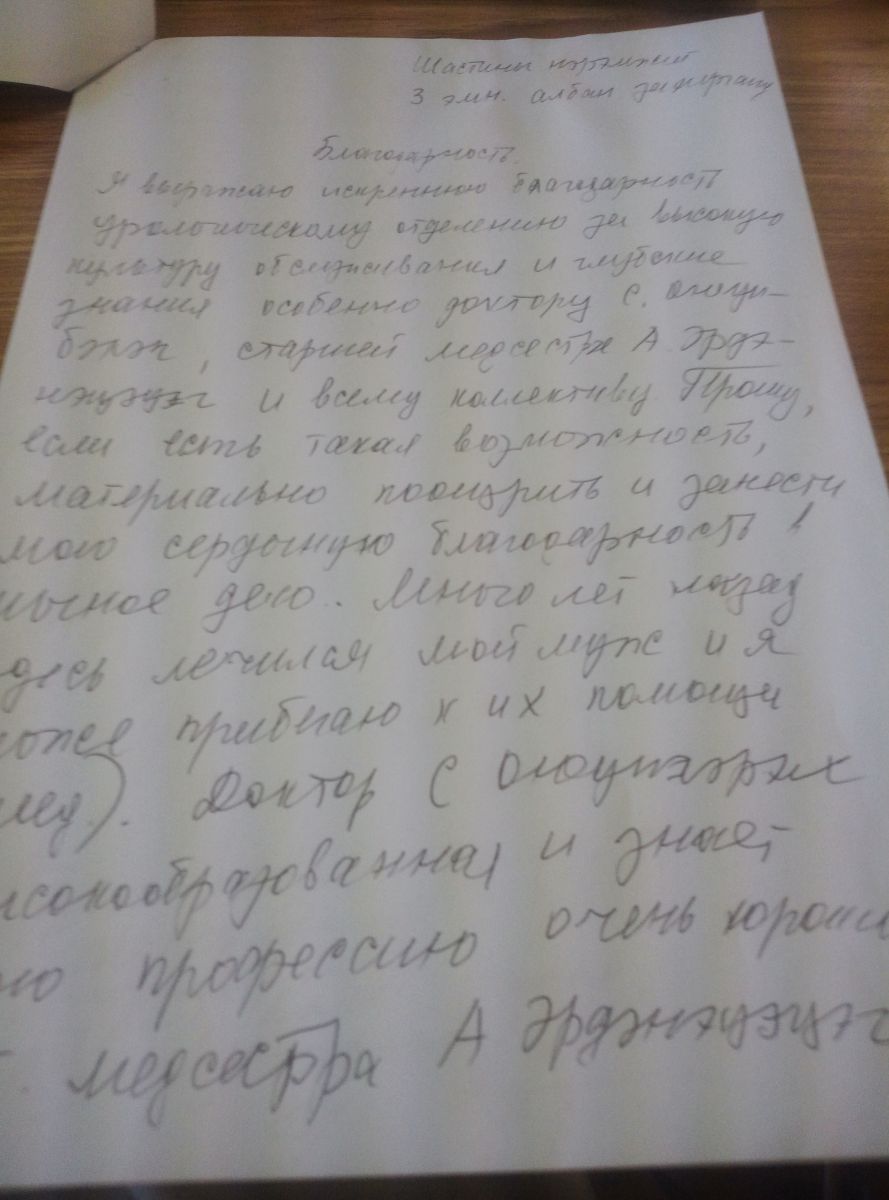 Шастины нэрэмжит
3 эмн. албан
Благодарность.
Я выражаю искреннюю благодарность
урологическому отделению за высокую
культуру обслуживания и глубокие
знания особенно доктору С.
старшей медсестре А. Эрдэ-
нэцэцэг и всему коллективу. Прошу,
если есть такая возможность,
материально поощрить и занести
мою сердечную благодарность в
личное дело.. Много лет назад
десь лечился мой муж и я
тоже прибегаю к их помощи
лед). Доктор С
ысокообразованная и знает
ою профессию очень хорошо
медсестра А Эрдэнэцэцэг